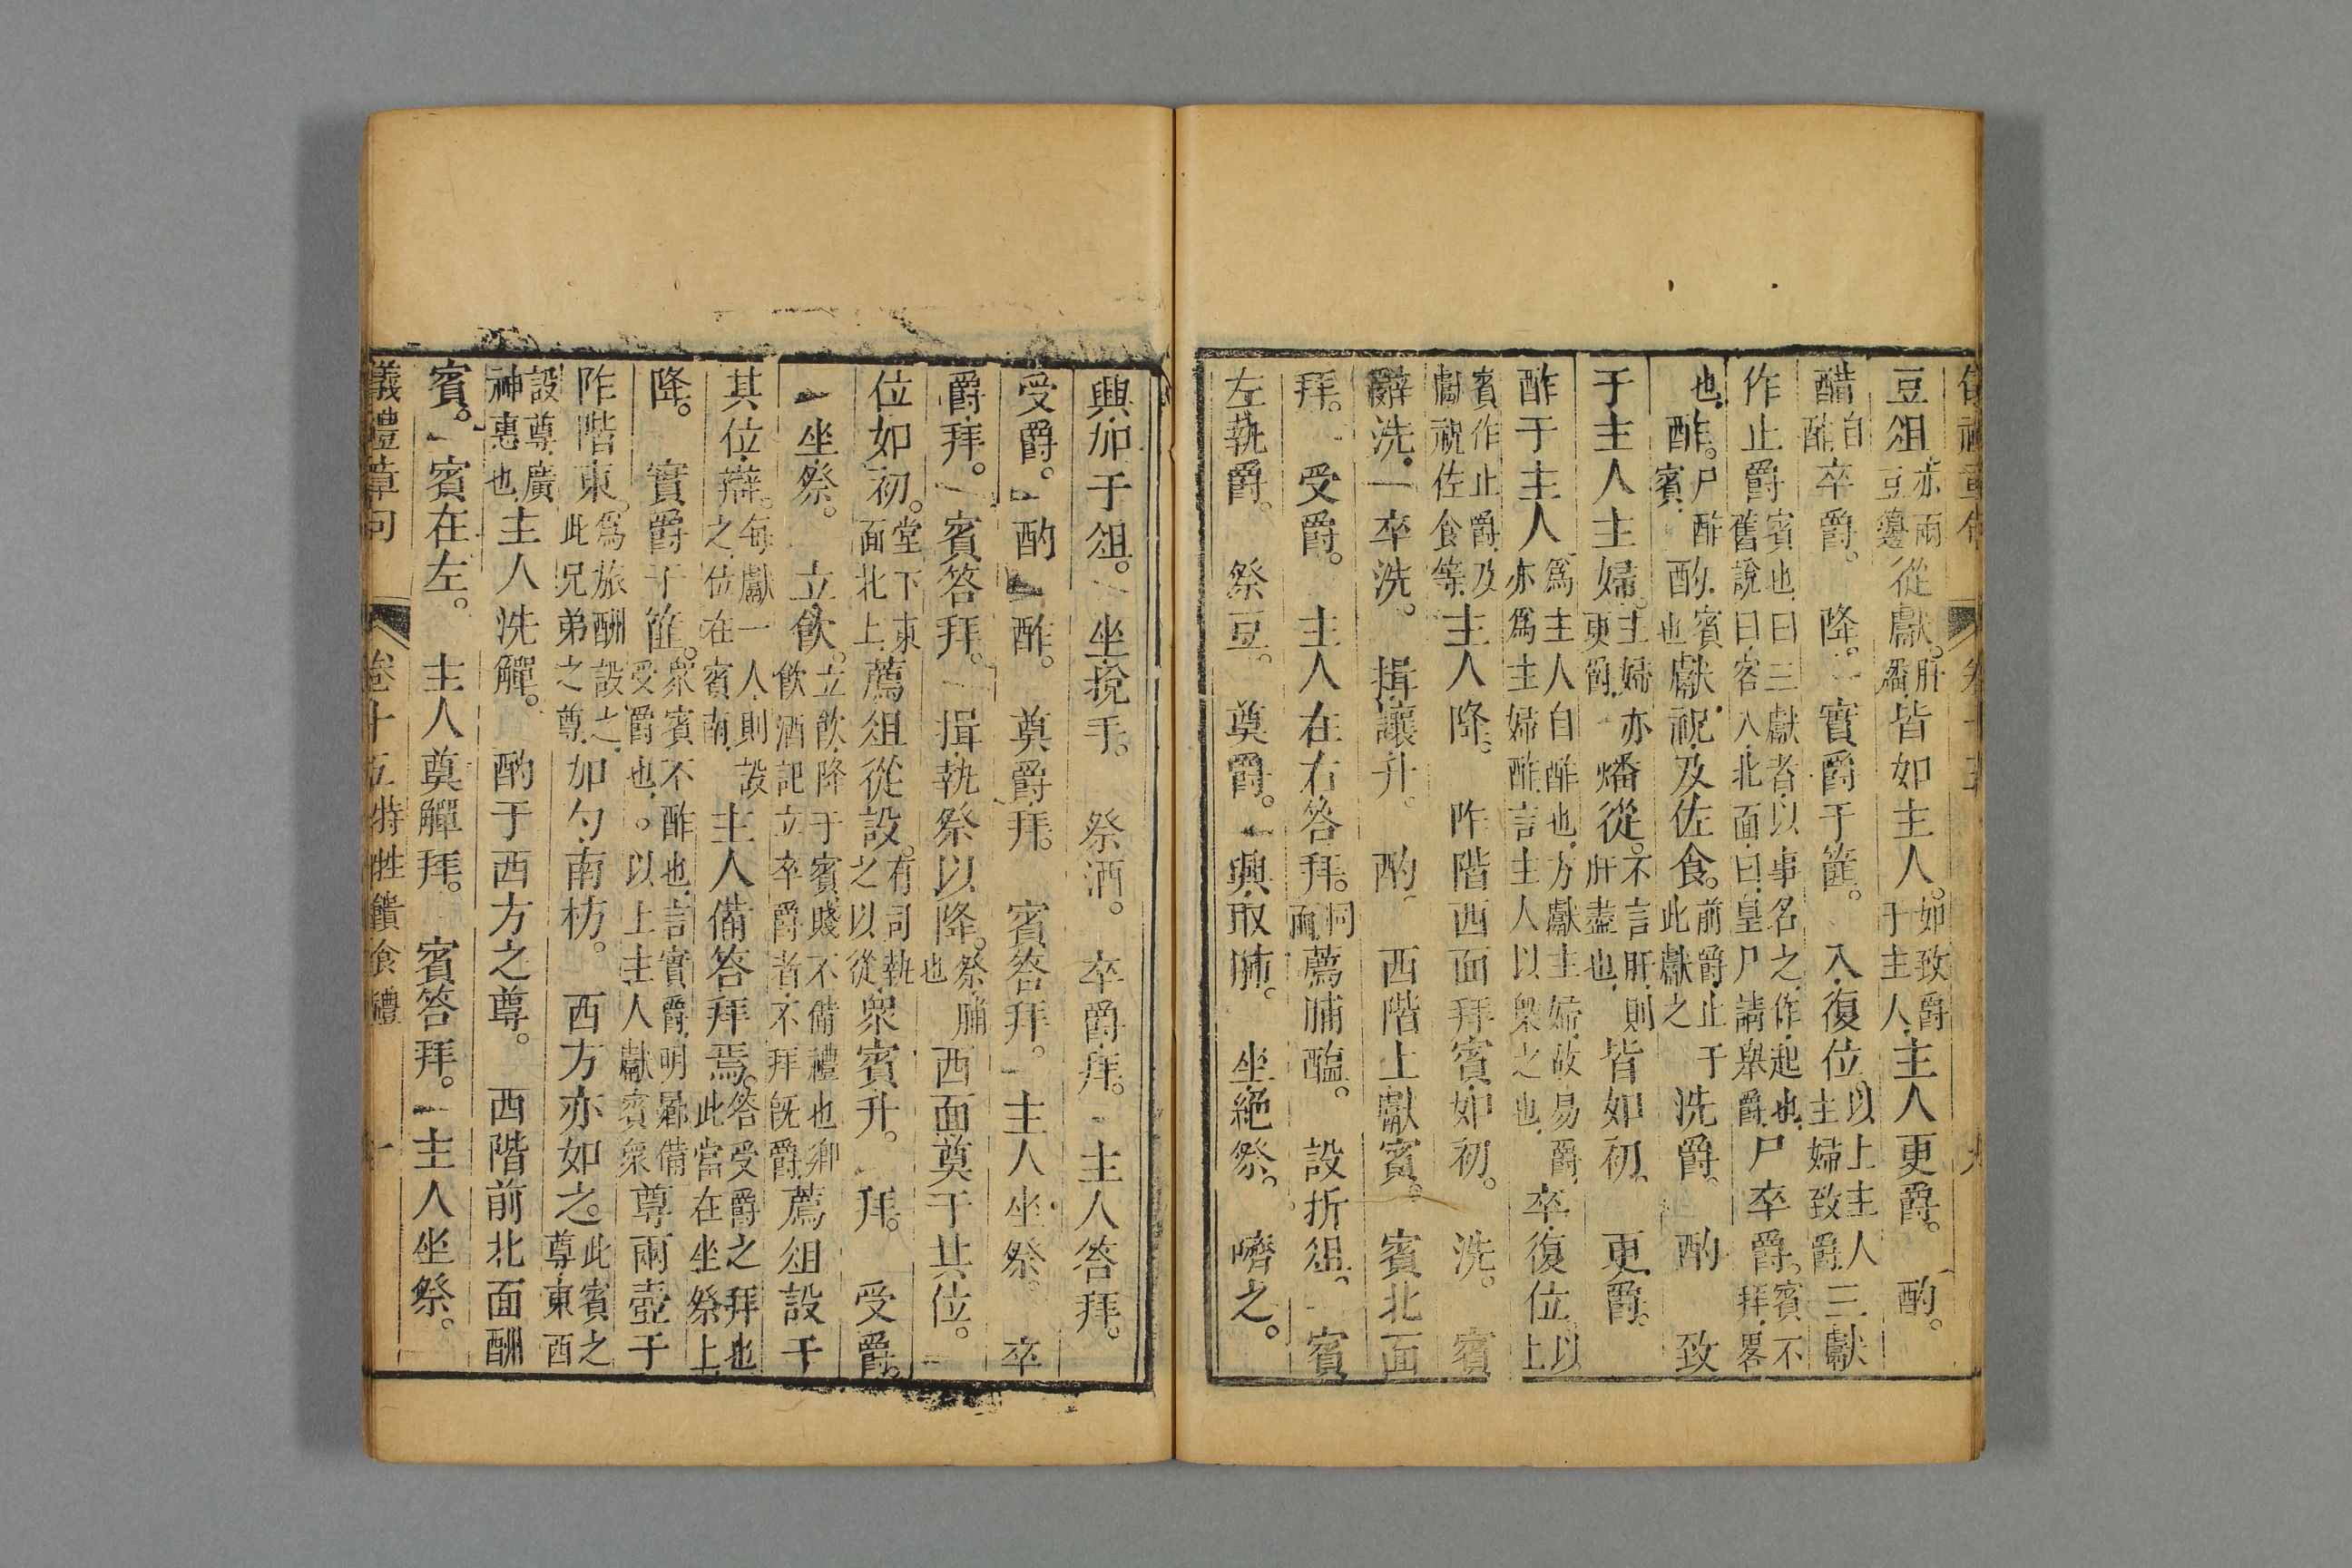 豆俎亦兩豆籩從獻肝燔皆如主人如致爵于主人主人更爵酌
醋自酢卒爵降實爵于篚入復位以上主人主婦致爵三獻
作止爵賓也曰三獻者以事名之作起也舊說曰客入北面曰皇尸請舉爵尸卒爵賓不拜畧
也酢尸酢賓酌賓也獻祝及佐食前爵止于此獻之洗爵酌致
于主人主婦主婦亦更爵燔從不言肝則肝盡也皆如初更爵
酢于主人為主人自酢也方獻主婦故易爵亦為主婦酢言主人以與之也卒復位以上
賓作止爵及獻祝佐食等主人降阼階西面拜賓如初洗賓
辭洗卒洗揖讓升酌西階上獻賓賓北面
拜受爵主人在右答拜同面薦脯醢設折俎賓
左執爵祭豆奠爵興取肺坐絕祭嚌之
興加于俎坐挩手祭酒卒爵拜主人答拜
受爵酌酢奠爵拜賓答拜主人坐祭卒
爵拜賓答拜揖執祭以降祭脯也西面奠于其位
位如初堂下東面北上薦俎從設有司執之以從眾賓升拜受爵
坐祭立飲立飲降于賓賤不備禮也飲酒記立卒爵者不拜既爵薦俎設于
其位辯每獻一人則設之位在賓南主人備答拜焉答受爵之拜也此當在坐祭上
降實爵于篚眾賓不酢也言實爵明爵備受爵也。以上主人獻賓眾尊兩壺于
阼階東為旅酬設之此兄弟之尊加勺南枋西方亦如之此賓之尊東西
設尊廣神惠也主人洗觶酌于西方之尊西階前北面酬
賓賓在左主人奠觶拜賓答拜主人坐祭
儀禮章句 卷十五特牲饋食禮 十